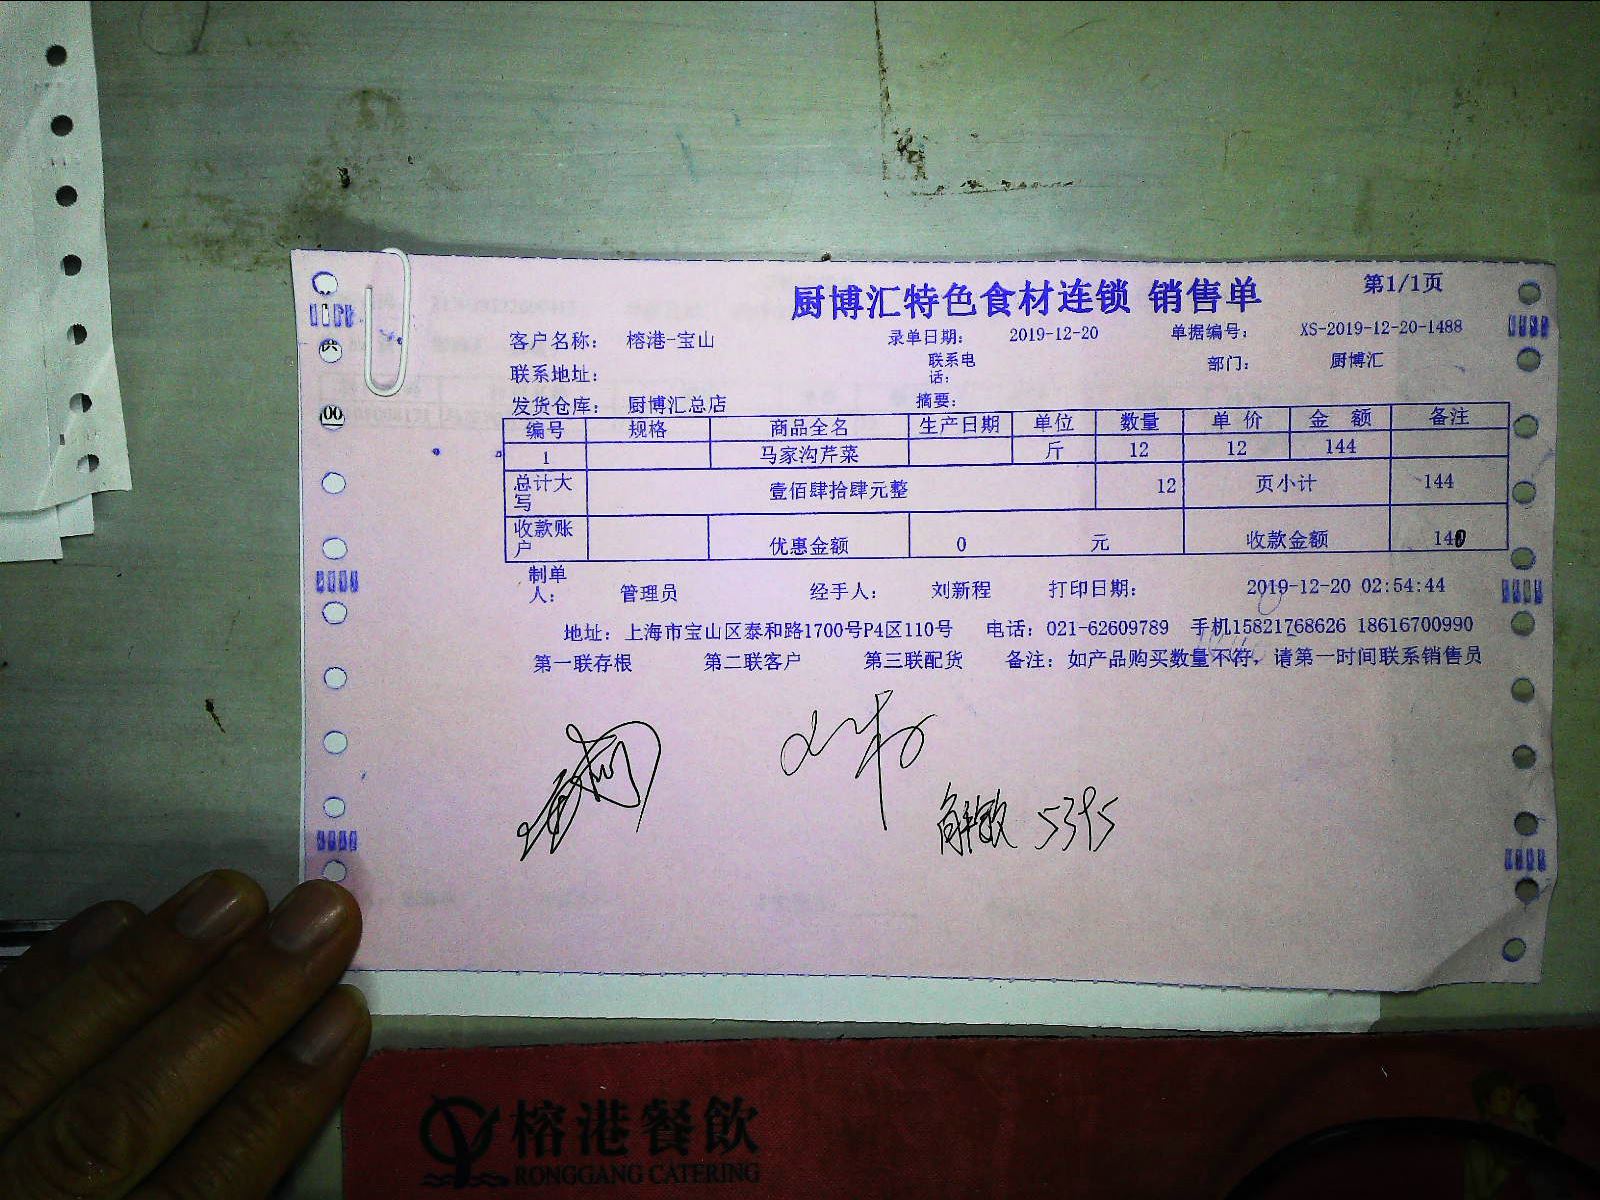 厨博汇特色食材连锁 销售单 第1/1页
客户名称: 榕港-宝山 录单日期: 2019-12-20 单据编号: XS-2019-12-20-1488
联系地址: 联系电话: 部门: 厨博汇
发货仓库: 厨博汇总店 摘要:
编号 规格 商品全名 生产日期 单位 数量 单价 金额 备注
1 马家沟芹菜 斤 12 12 144
总计大写 壹佰肆拾肆元整 12 页小计 144
收款账户 优惠金额 0 元 收款金额
制单人: 管理员 经手人: 刘新程 打印日期: 2019-12-20 02:54:44
地址: 上海市宝山区泰和路1700号P4区110号 电话: 021-62609789 手机15821768626 18616700990
第一联存根 第二联客户 第三联配货 备注: 如产品购买数量不符, 请第一时间联系销售员
5395
榕港餐飲
RONGGANG CATERING